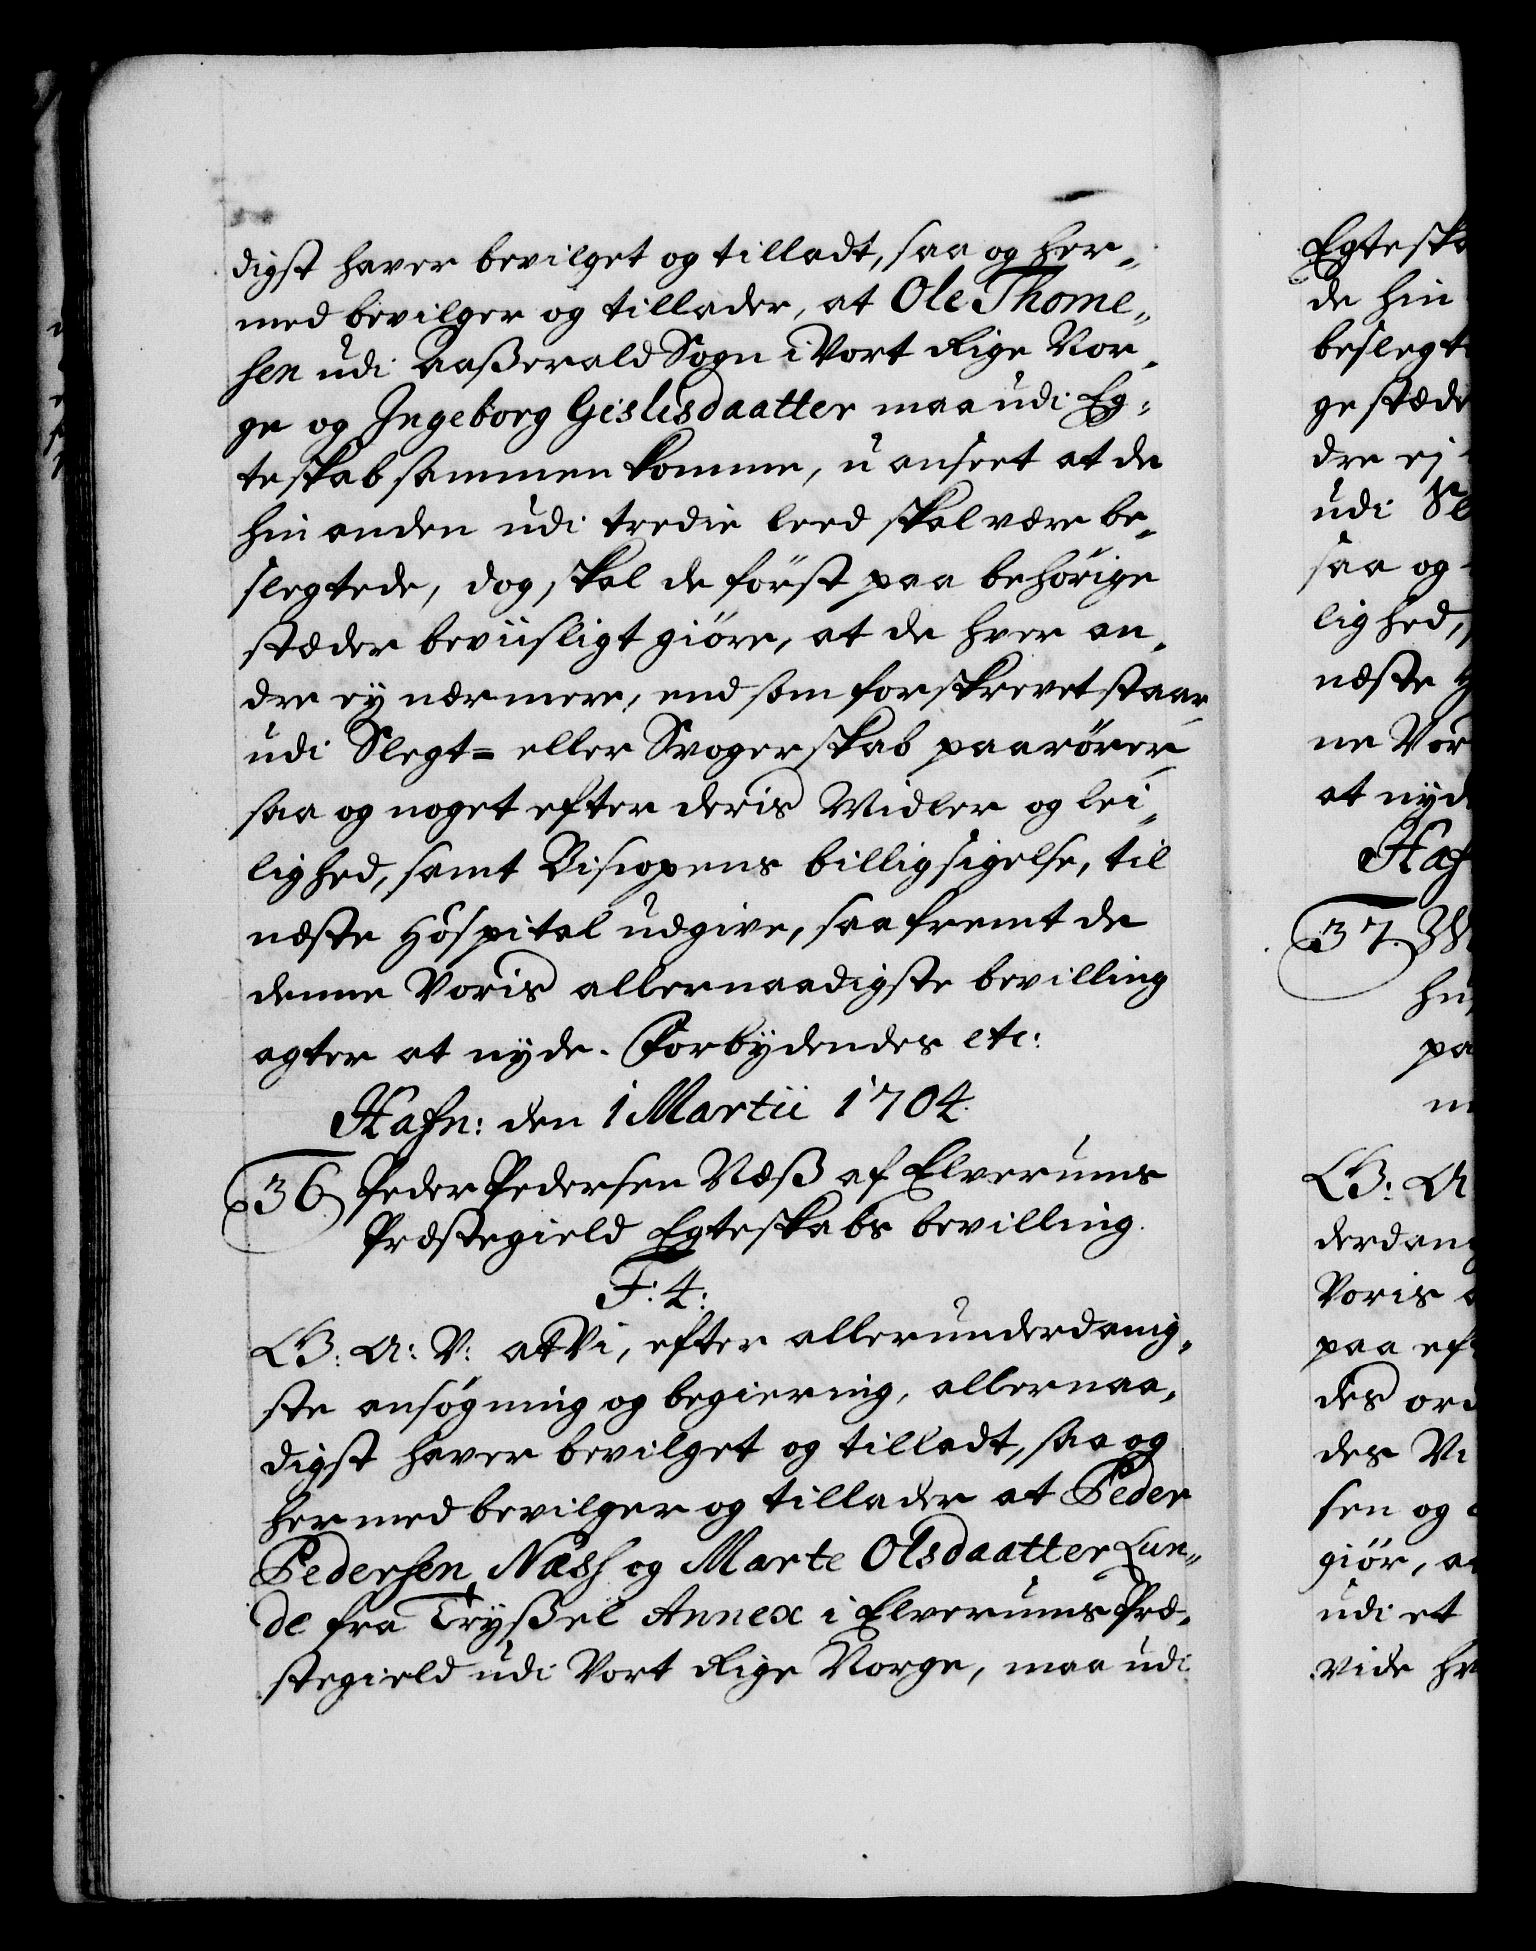 digst haver bevilget og tilladt, saa og her„
med bevilger og tillader, at Ole Thome„
sen udi Aaßerald Sogn i Vort Rige Nor„
ge og Ingeborg Gislisdaatter maa udi Eg„
teskab sammen komme, uanseet at de
hinanden udi tredie leed skal være be„
slegtede, dog skal de först paa behörige
stæder beviisligt giöre, at de hver an„
dre ey nærmere, end som forskrevet staar,
udi Slegt= eller Svogerskab paarörer,
saa og noget efter deris Midler og lei„
lighed, samt Biscopens billigsigelse, til
næste Hospital udgive, saafremt de
denne Voris allernaadigste bevilling
agter at nyde. Forbydendes etc:
Hafn: den 1 Martii 1704.
36. Peder Pedersen Næß af Elverums
Præstegield Egteskabs bevilling.
F: 4:
G: A: V: at Vi, efter allerunderdanig„
ste ansögning og begiering, allernaa„
digst haver bevilget og tilladt, saa og
hermed bevilger og tillader at Peder
Pedersen Næss og Marte Olsdaatter Lun„
de fra Tryßel Annex i Elverums Præ„
stegield udi Vort Rige Norge, maa udi
Egteska
de hin
beslegt
ge stæde
dre ej
udi Sl
saa og
lighed,
næste H
ne Vor
at nyd
Haf
37.
pa
G: A
derdan
Voris
paa ef
des ord
des Vi
sen og
giör, a
udi et
vide hv